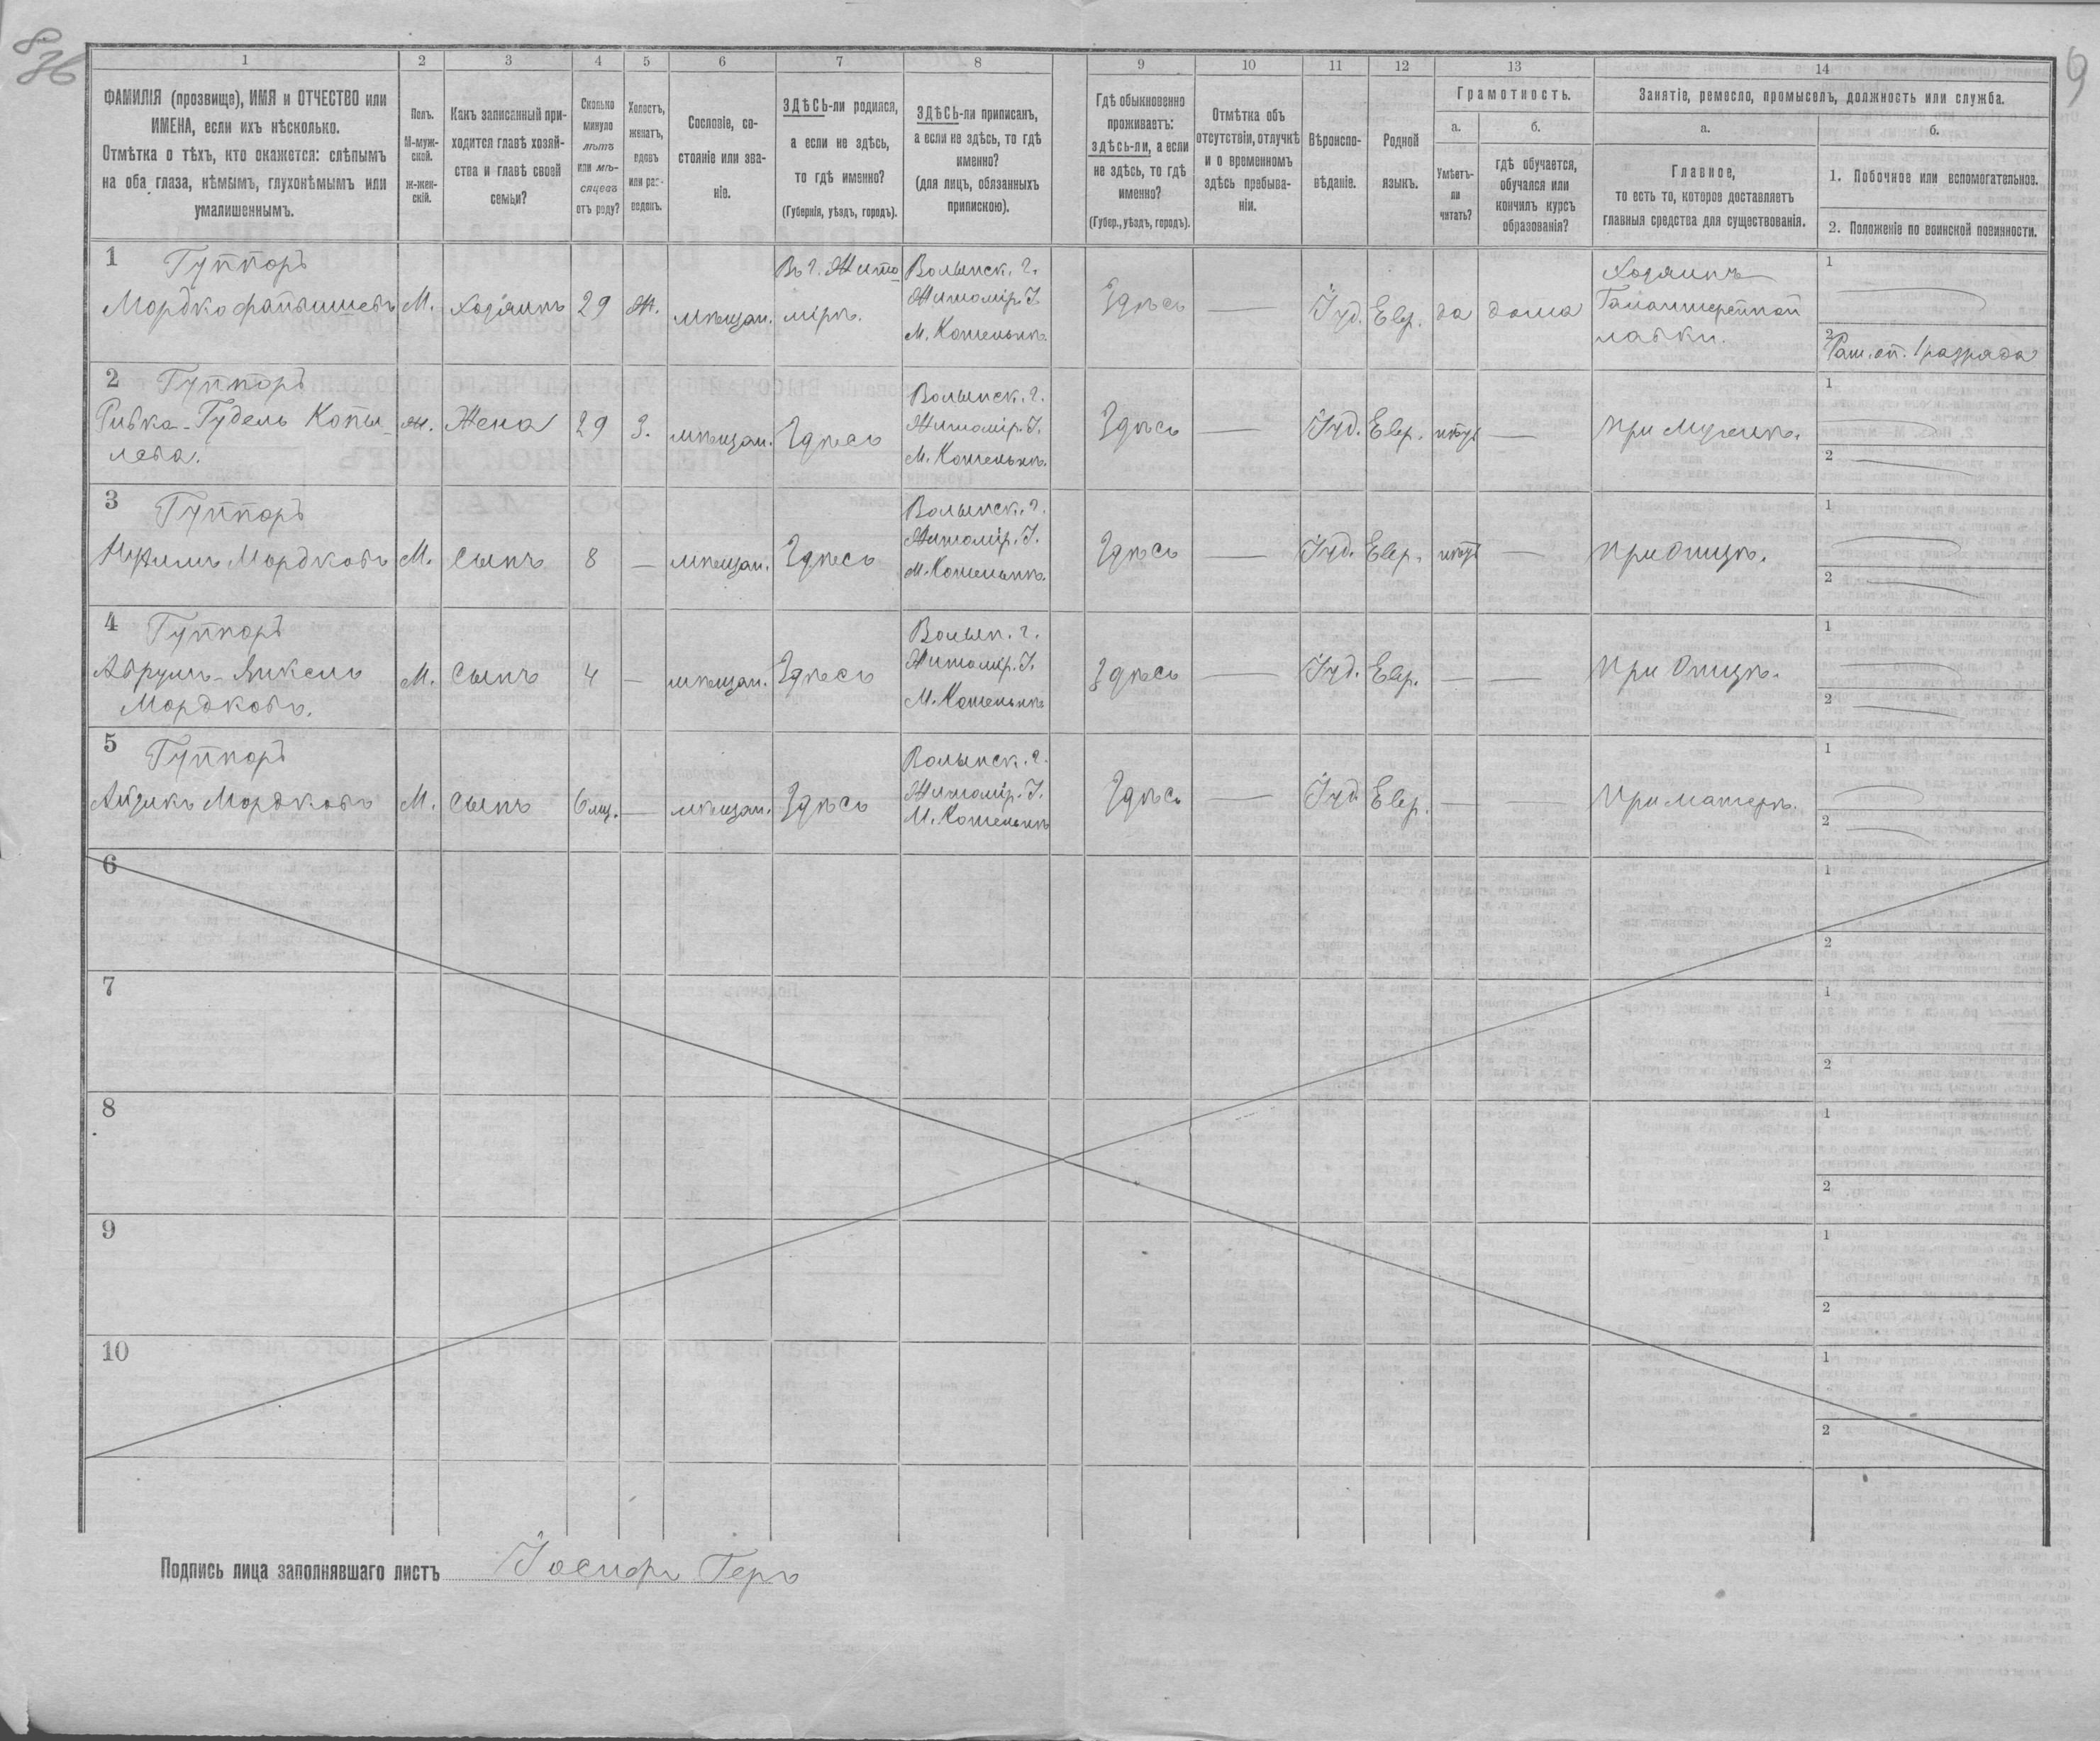 8
36
9
1 2 3 4 5 6 7 8 9 10 11 12 13 14
ФАМИЛІЯ (прозвище), ИМЯ и ОТЧЕСТВО или
ИМЕНА, если ихъ нѣсколько.
Отмѣтка о тѣхъ, кто окажется: слѣпымъ
на оба глаза, нѣмымъ, глухонѣмымъ или
умалишеннымъ.
Полъ.
М-муж-
ской.
ж-жен-
скій.
Какъ записанный при-
ходится главѣ хозяй-
ства и главѣ своей
семьи?
Сколько
минуло
лѣтъ
или мѣ-
сяцевъ
отъ роду?
Холостъ,
женатъ,
вдовъ
или раз-
веденъ.
Сословіе, со-
стояніе или зва-
ніе.
ЗДѢСЬ-ли родился,
а если не здѣсь,
то гдѣ именно?
(Губернія, уѣздъ, городъ).
ЗДѢСЬ-ли приписанъ,
а если не здѣсь, то гдѣ
именно?
(для лицъ, обязанныхъ
припискою).
Гдѣ обыкновенно
проживаетъ:
здѣсь-ли, а если
не здѣсь, то гдѣ
именно?
(Губер., уѣздъ, городъ).
Отмѣтка объ
отсутствіи, отлучкѣ
и о временномъ
здѣсь пребыва-
ніи.
Вѣроиспо-
вѣданіе.
Родной
языкъ.
Грамотность.
а.
Умѣетъ-
ли
читать?
б.
гдѣ обучается,
обучался или
кончилъ курсъ
образованія?
Занятіе, ремесло, промыселъ, должность или служба.
а.
Главное,
то есть то, которое доставляетъ
главныя средства для существованія.
б.
1. Побочное или вспомогательное.
2. Положеніе по воинской повинности.
1
Мордко
М.
хозяинъ
29
Ж.
мѣщан.
Въ г. Жито
мірѣ.
Волынск. г.
Житомір. У.
Здѣсь
Іуд.
Евр.
да
дома
Хозяинъ
Галантерейной
лавки.
1
2
1 разряда
2
Ривка-
ж.
Жена
29
З.
мѣщан.
Здѣсь
Волынск. г.
Житомір. У.
Здѣсь
Іуд.
Евр.
нѣтъ
при Мужѣ.
1
2
3
Мордковъ
М.
сынъ
8
мѣщан.
Здѣсь
Волынск. г.
Житомір. У.
Здѣсь
Іуд.
Евр.
нѣтъ
при Отцѣ.
1
2
4
Абрумъ-Янкель
Мордковъ.
М.
сынъ
4
мѣщан.
Здѣсь
Волын. г.
Житомір. У.
Здѣсь
Іуд.
Евр.
при Отцѣ.
1
2
5
Айзикъ Мордковъ
М.
сынъ
6 мц.
мѣщан.
Здѣсь
Волынск. г.
Житомір. У.
Здѣсь
Іуд.
Евр.
при матерѣ.
1
2
6
1
2
7
1
2
8
1
2
9
1
2
10
1
2
Подпись лица заполнявшаго листъ Іосифъ Геръ